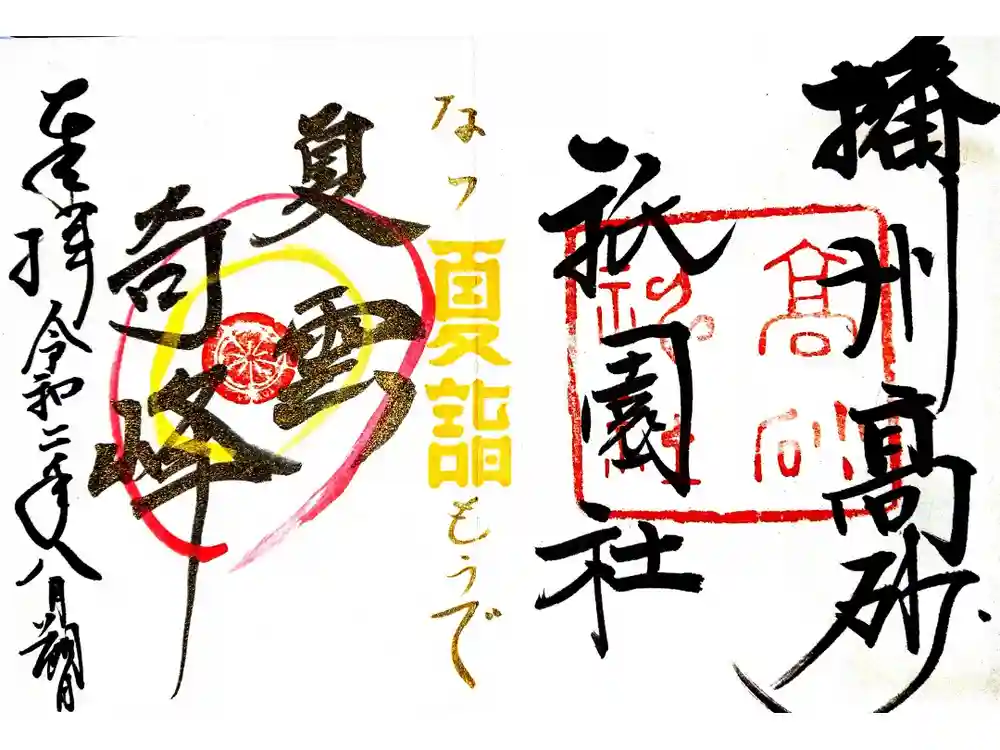 播州高砂
祇園社
高砂
神社
なつ
夏詣
もうで
夏雲
奇峰
奉拝
令和二年八月朔日